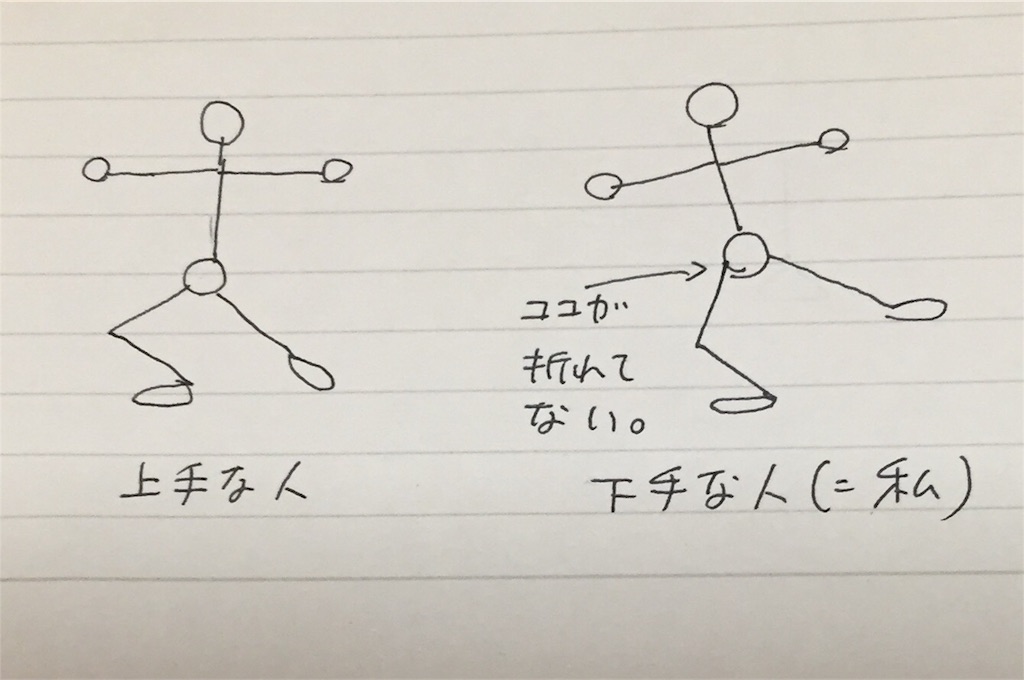 ココが
折れて
ない。
上手な人
下手な人(=私)